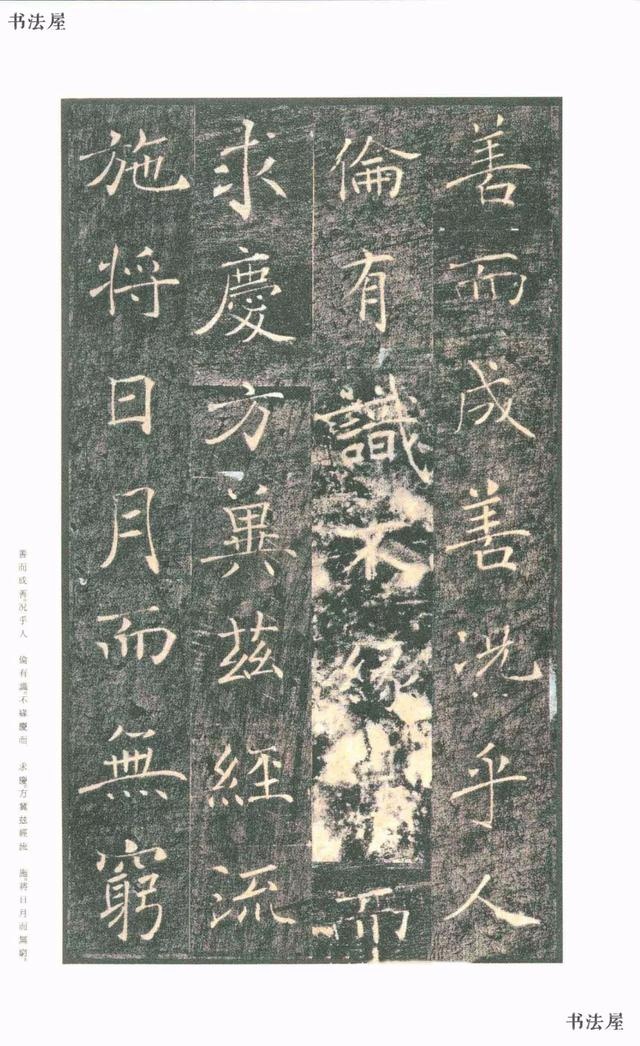 书法屋
善而成善况乎人
倫有識不緣慶而
求慶方冀茲經流
施将日月而無窮
善而成善。况乎人　倫有識。不緣慶而　求慶。方冀茲經流　施。將日月而無窮。
书法屋